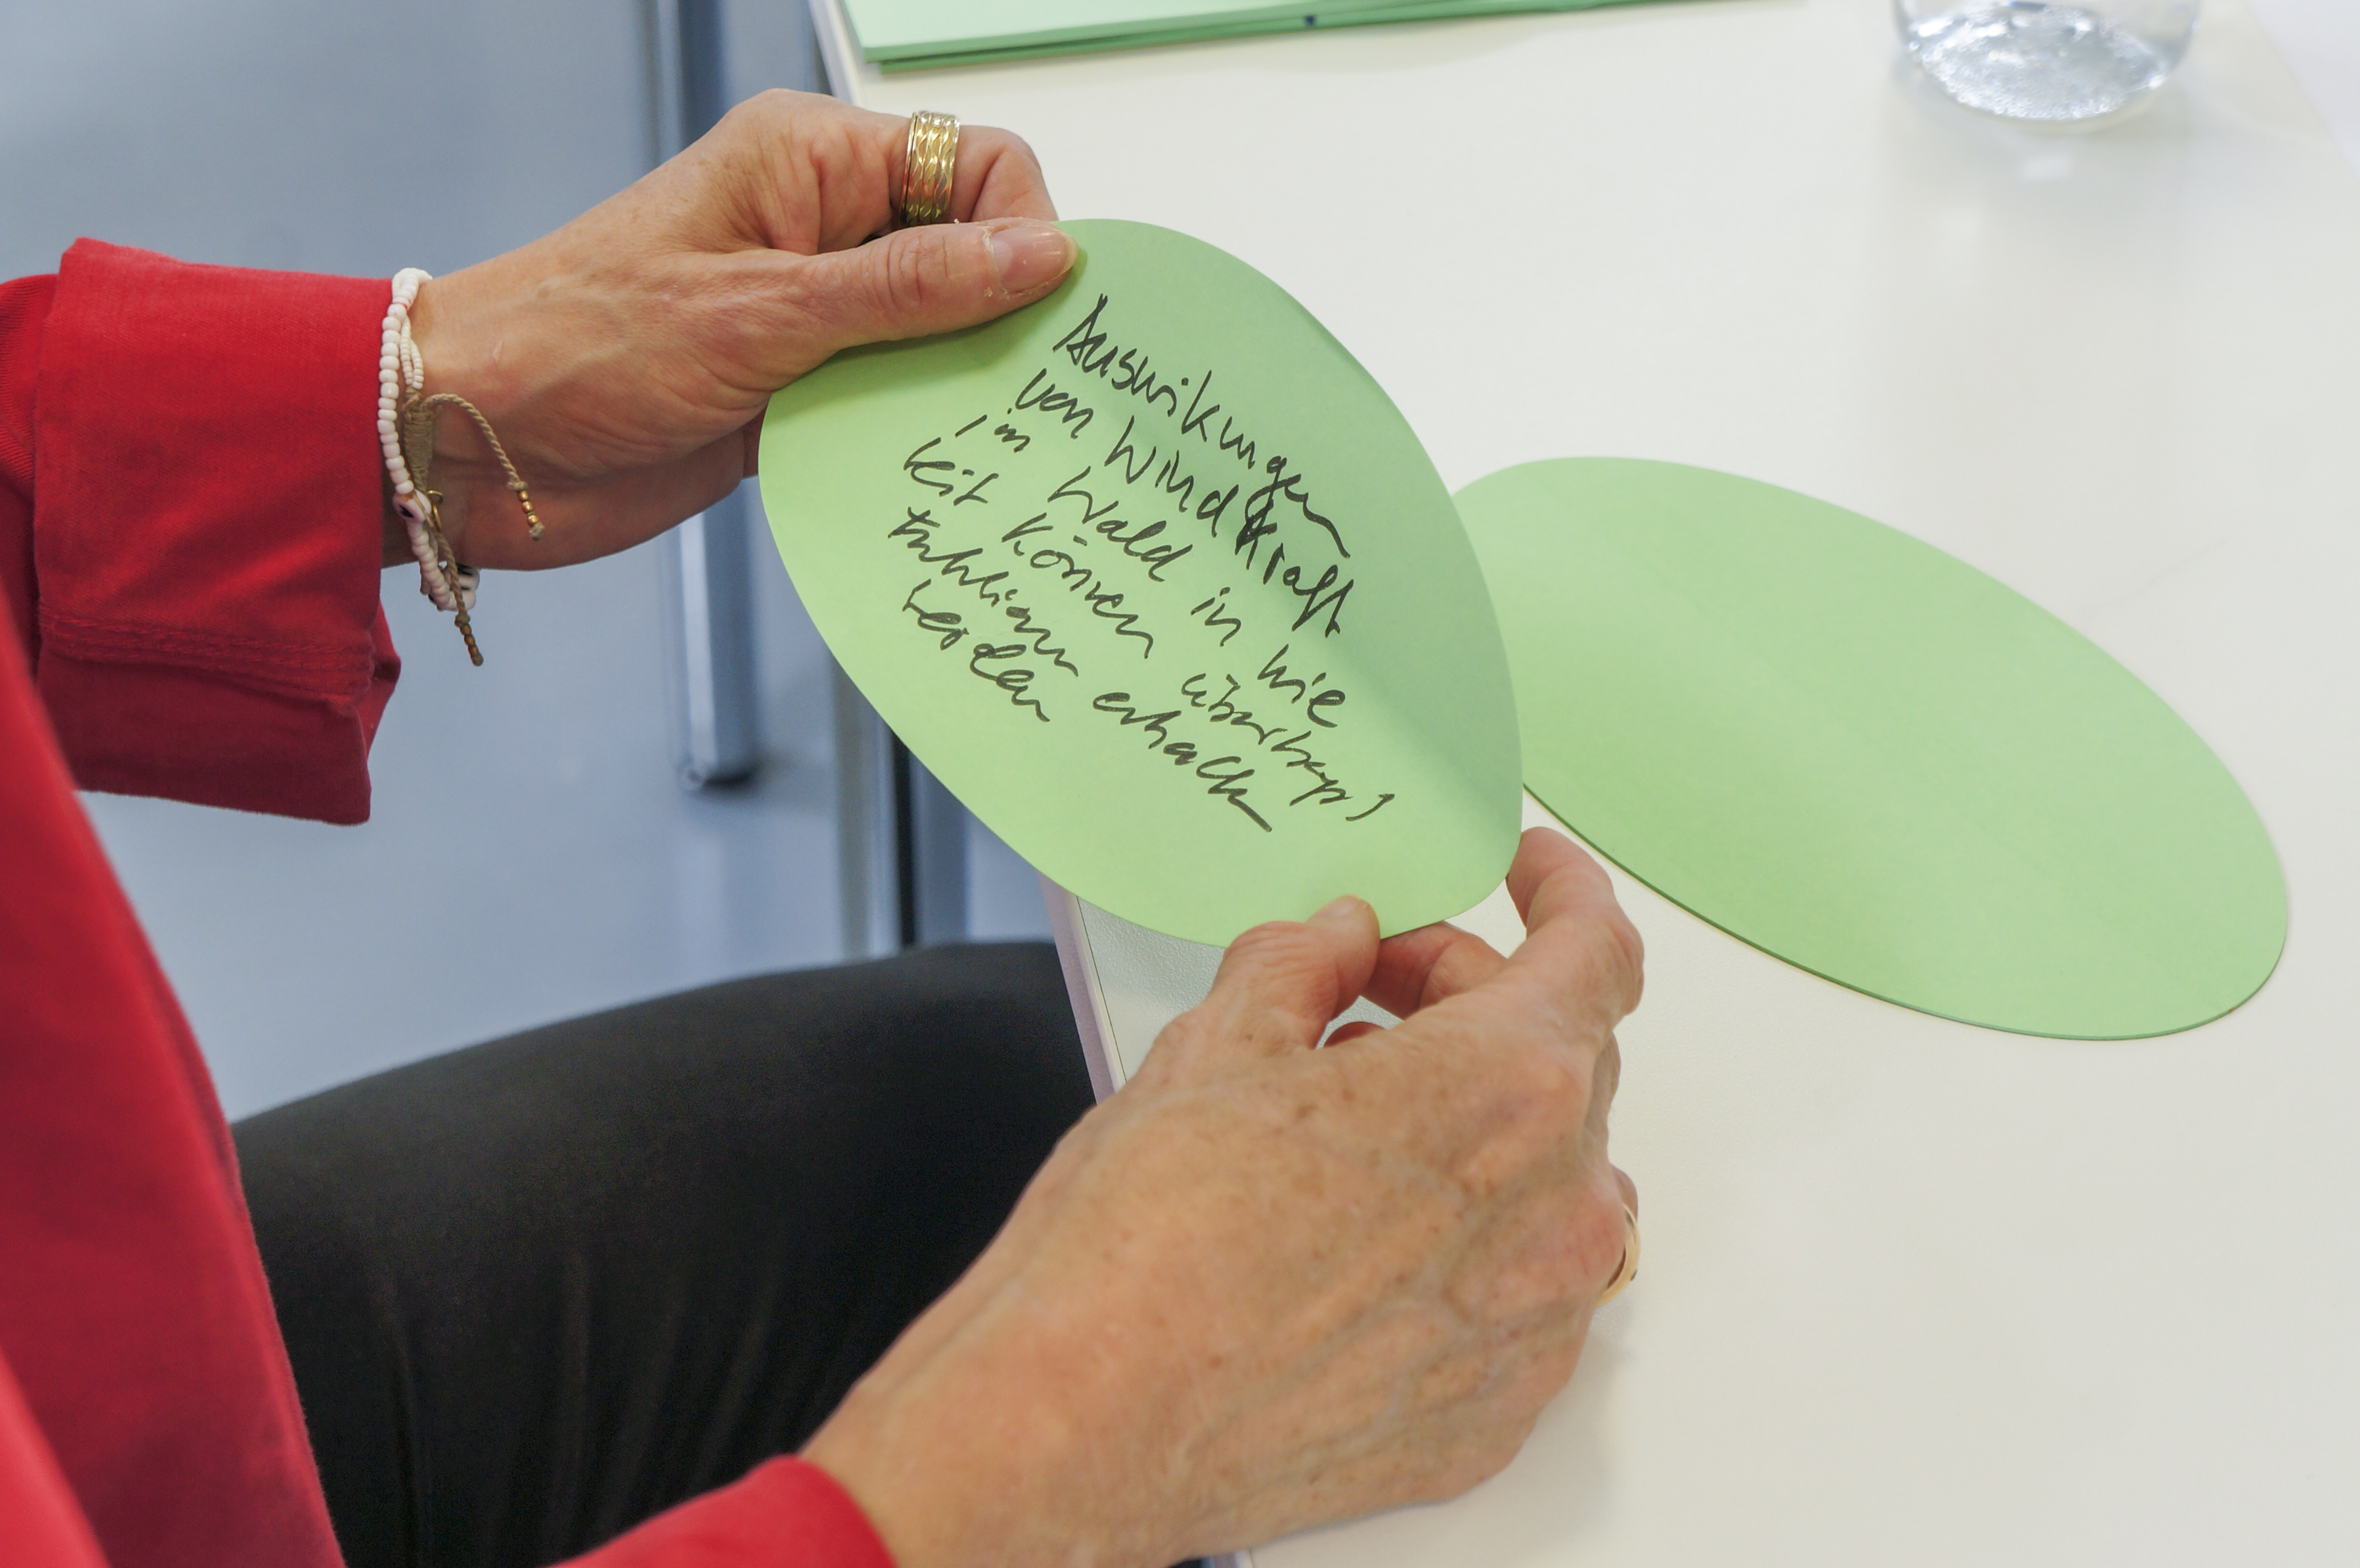 Auswirkungen
von Windkraft
im Wald in wie
weit können überhaupt
Funktionen erhalten
werden